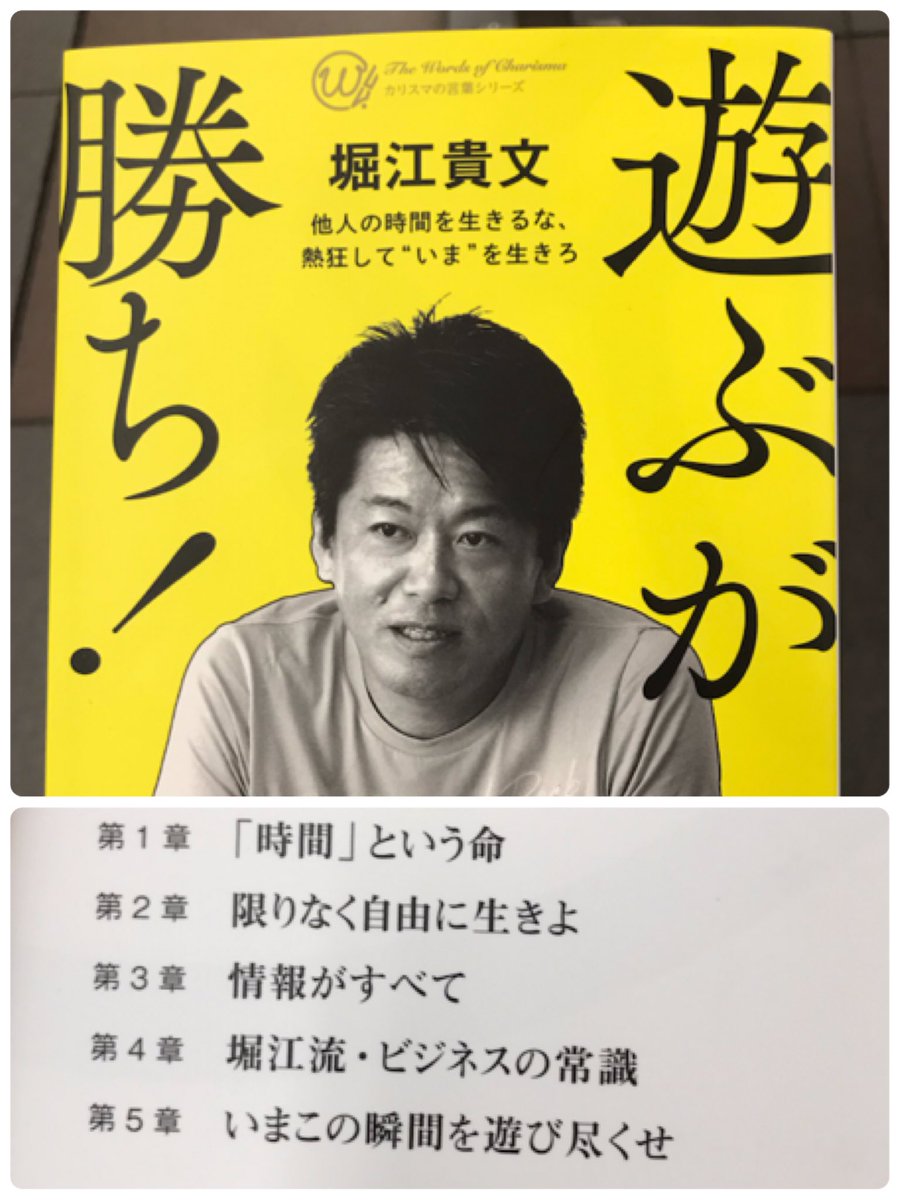 The Words of Charisma
カリスマの言葉シリーズ
遊ぶが
勝ち!
堀江貴文
他人の時間を生きるな、
熱狂して“いま”を生きろ
第1章 「時間」という命
第2章 限りなく自由に生きよ
第3章 情報がすべて
第4章 堀江流・ビジネスの常識
第5章 いまこの瞬間を遊び尽くせ